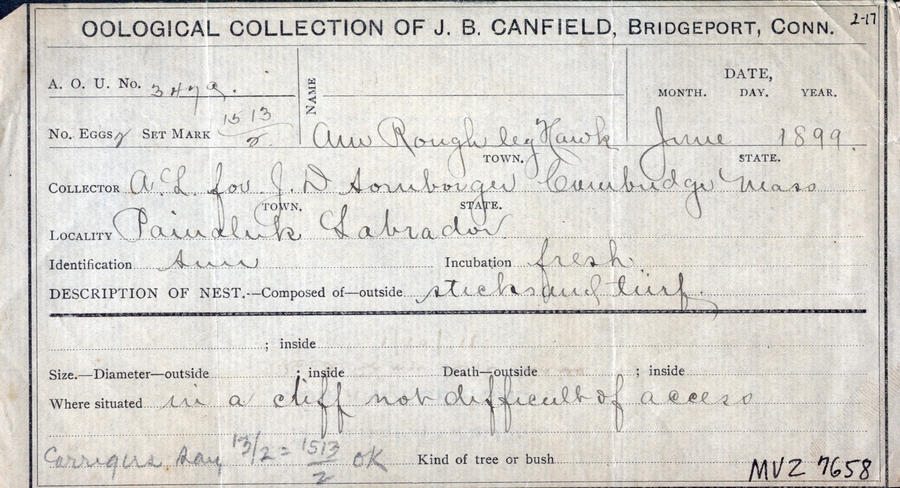 OOLOGICAL COLLECTION OF J. B. CANFIELD, BRIDGEPORT, CONN. 2-17
A. O. U. No. 347a. NAME DATE,
MONTH. DAY. YEAR.
No. EGGS 2 SET MARK 1513/2 Am Rough leg Hawk June 1899.
TOWN. STATE.
COLLECTOR A. L. for J. D Sornborger Cambridge Mass
TOWN. STATE.
LOCALITY Labrador
Identification Incubation fresh
DESCRIPTION OF NEST.--Composed of—outside sticks and turf.
; inside
Size.—Diameter—outside ; inside Death—outside ; inside
Where situated in a cliff not difficult of access
13/2 = 1513/2 OK Kind of tree or bush MVZ 7658